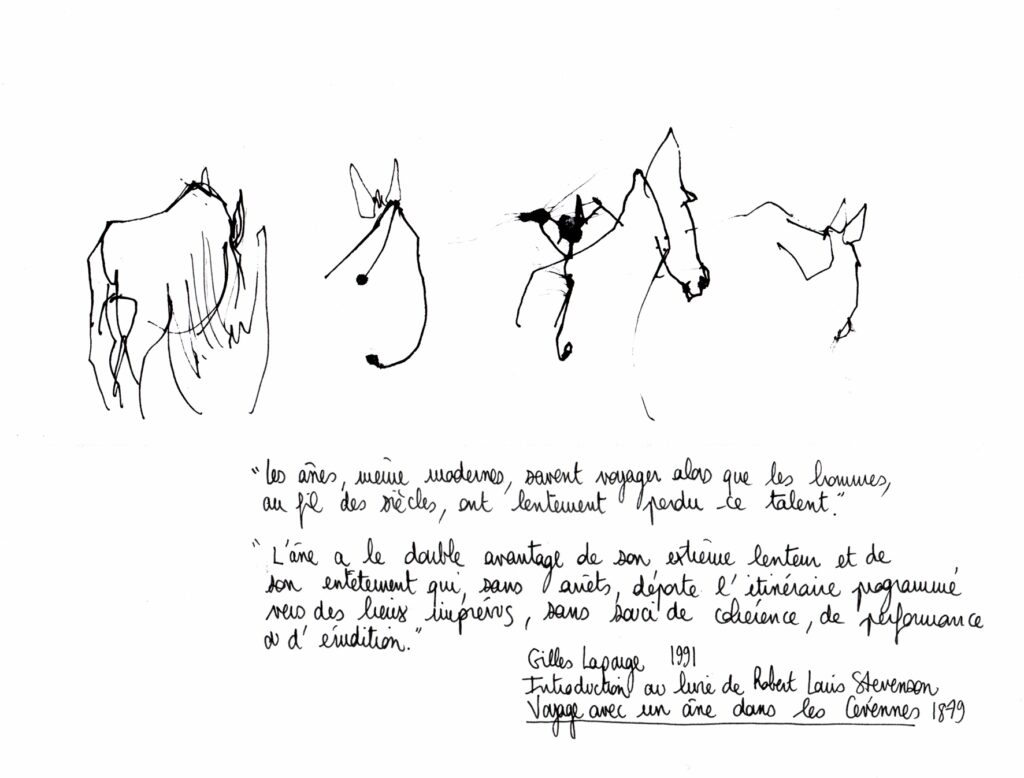 "Les ânes, même modernes, savent voyager alors que les hommes,
au fil des siècles, ont lentement perdu ce talent."
"L'âne a le double avantage de son extrême lenteur et de
son entêtement qui, sans arrêts, déporte l'itinéraire programmé
vers des lieux imprévus, sans souci de cohérence, de performance
ou d'érudition."
Gilles Lapouge 1991
Introduction au livre de Robert Louis Stevenson
Voyage avec un âne dans les Cévennes 1879